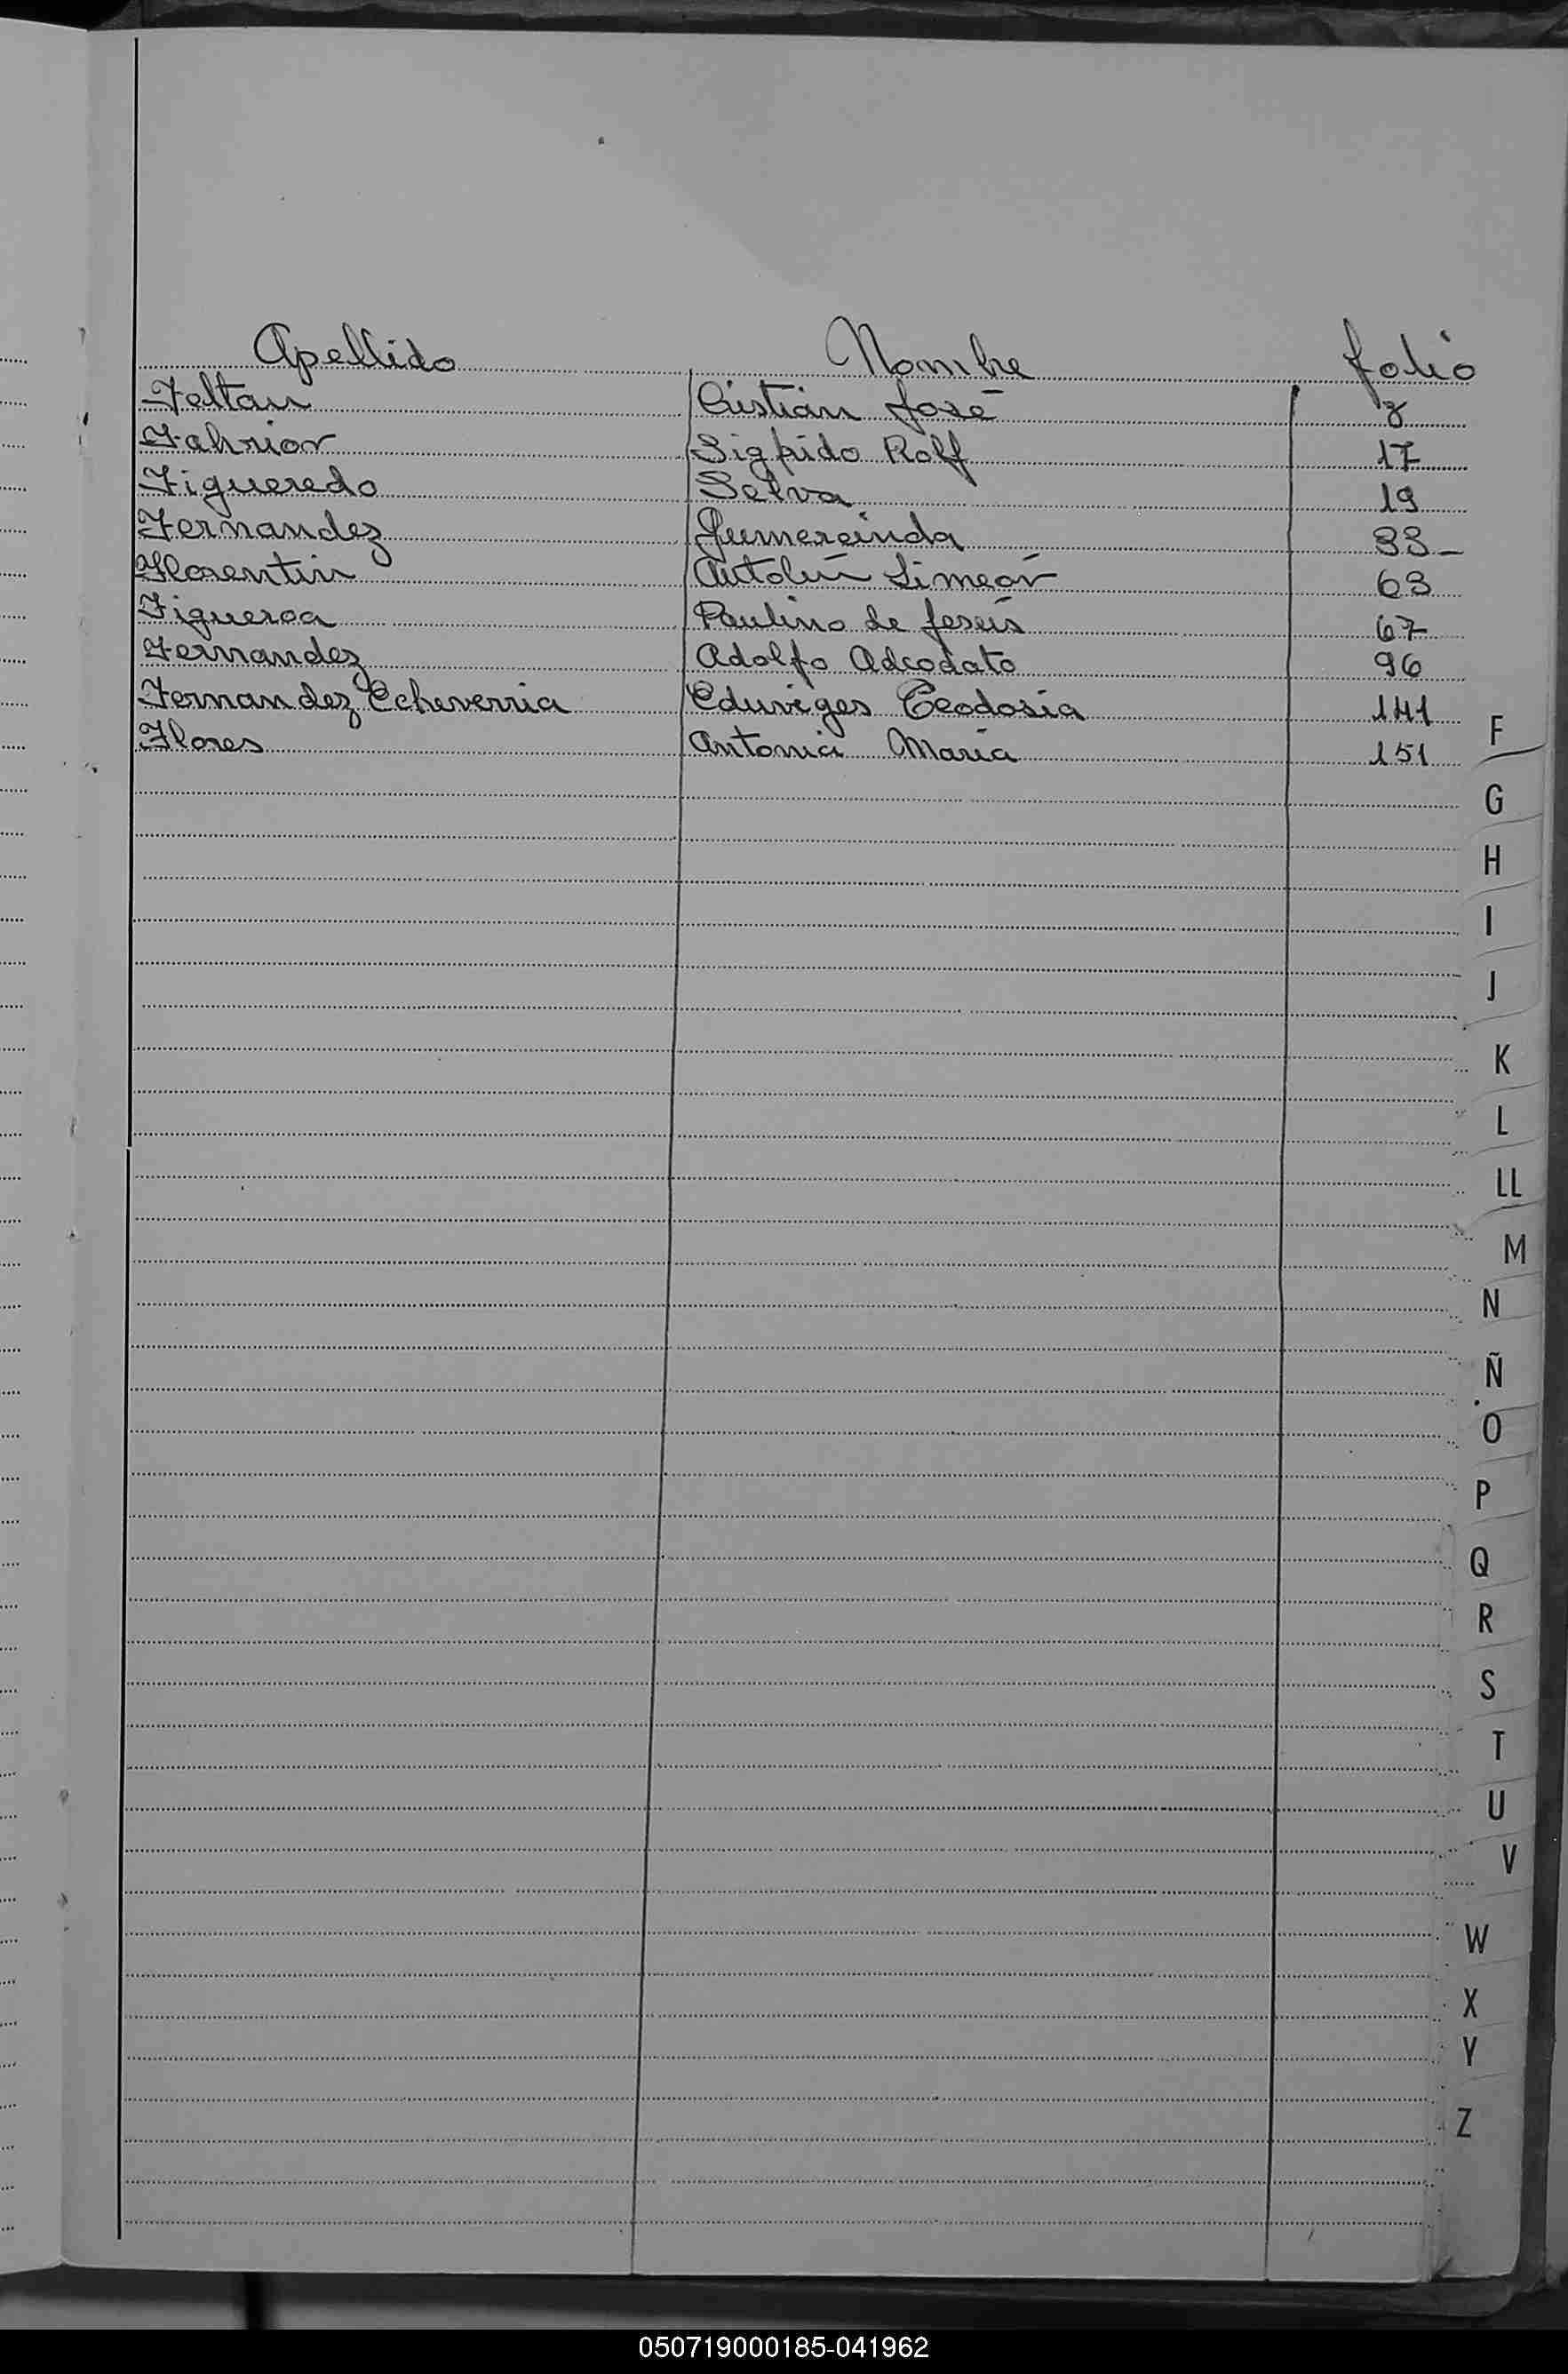 Apellido Nombre folio
Feltan Cristián José 8
Fahrior Sigfrido Rolf 17
Figueredo Selva 19
Fernandez Gumercinda 33-
Florentin Autolin Simeón 63
Figueroa Paulino de Jesús 67
Fernandez Adolfo Adeodato 96
Fernandez Echeverria Eduviges Teodosia 141
Flores Antonia María 151
F
G
H
I
J
K
L
LL
M
N
Ñ
O
P
Q
R
S
T
U
V
W
X
Y
Z
050719000185-041962